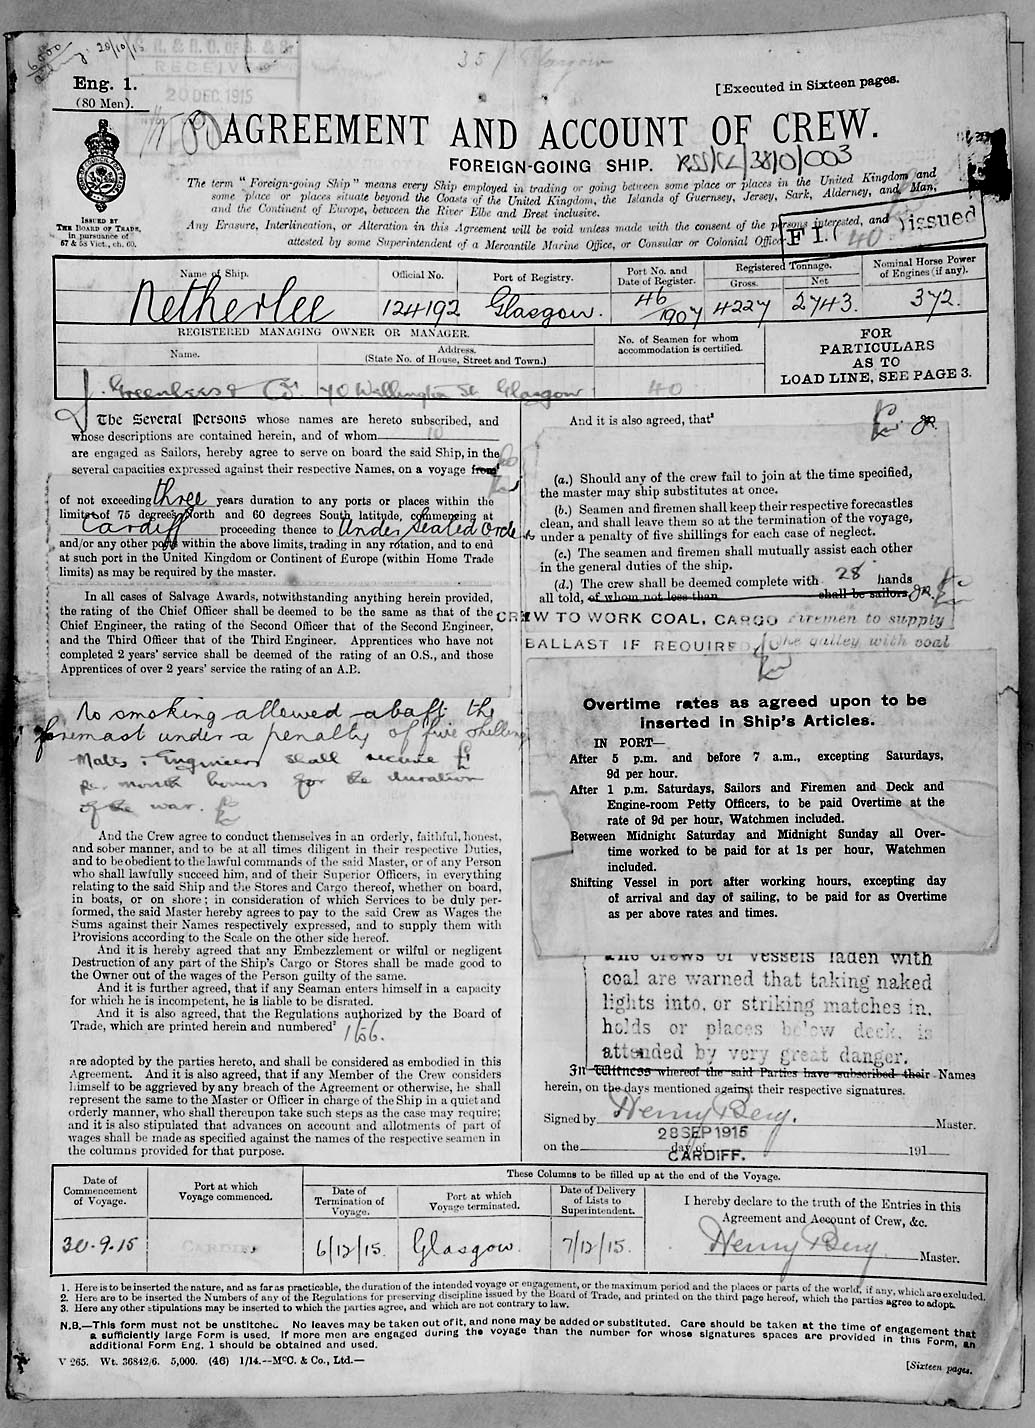 28/10/15
351 Glasgow
R. & R. O. OF S. & S.
RECEIVED
20 DEC. 1915
Eng. 1.
(80 Men).
[Executed in Sixteen pages.
AGREEMENT AND ACCOUNT OF CREW.
FOREIGN-GOING SHIP. RSS/CL/38/0/003
ISSUED BY
THE BOARD OF TRADE,
in pursuance of
57 & 58 Vict., ch. 60.
The term "Foreign-going Ship" means every Ship employed in trading or going between some place or places in the United Kingdom and
some place or places situate beyond the Coasts of the United Kingdom, the Islands of Guernsey, Jersey, Sark, Alderney, and Man,
and the Continent of Europe, between the River Elbe and Brest inclusive.
Any Erasure, Interlineation, or Alteration in this Agreement will be void unless made with the consent of the persons interested, and
attested by some Superintendent of a Mercantile Marine Office, or Consular or Colonial Officer
40 issued
Name of Ship.
Official No.
Port of Registry.
Port No. and
Date of Register.
Registered Tonnage.
Gross.
Net
Nominal Horse Power
of Engines (if any).
Netherlee
124192
Glasgow.
46/1907
4227
2743.
372.
REGISTERED MANAGING OWNER OR MANAGER.
Name.
Address.
(State No. of House, Street and Town.)
No. of Seamen for whom
accommodation is certified.
FOR
PARTICULARS
AS TO
LOAD LINE, SEE PAGE 3.
J. Greenlees & Co.
70 Wellington St. Glasgow
40
The Several Persons whose names are hereto subscribed, and
whose descriptions are contained herein, and of whom 10
are engaged as Sailors, hereby agree to serve on board the said Ship, in the
several capacities expressed against their respective Names, on a voyage from¹
of not exceeding three years duration to any ports or places within the
limits of 75 degrees North and 60 degrees South latitude, commencing at
Cardiff proceeding thence to Under Sealed Orders
and/or any other ports within the above limits, trading in any rotation, and to end
at such port in the United Kingdom or Continent of Europe (within Home Trade
limits) as may be required by the master.
In all cases of Salvage Awards, notwithstanding anything herein provided,
the rating of the Chief Officer shall be deemed to be the same as that of the
Chief Engineer, the rating of the Second Officer that of the Second Engineer,
and the Third Officer that of the Third Engineer. Apprentices who have not
completed 2 years' service shall be deemed of the rating of an O.S., and those
Apprentices of over 2 years' service the rating of an A.B.
No smoking allowed abaft the
foremast under a penalty of five shillings
Mates & Engineers shall receive £1
per month bonus for the duration
of the war.
And the Crew agree to conduct themselves in an orderly, faithful, honest,
and sober manner, and to be at all times diligent in their respective Duties,
and to be obedient to the lawful commands of the said Master, or of any Person
who shall lawfully succeed him, and of their Superior Officers, in everything
relating to the said Ship and the Stores and Cargo thereof, whether on board,
in boats, or on shore; in consideration of which Services to be duly per-
formed, the said Master hereby agrees to pay to the said Crew as Wages the
Sums against their Names respectively expressed, and to supply them with
Provisions according to the Scale on the other side hereof.
And it is hereby agreed that any Embezzlement or wilful or negligent
Destruction of any part of the Ship's Cargo or Stores shall be made good to
the Owner out of the wages of the Person guilty of the same.
And it is further agreed, that if any Seaman enters himself in a capacity
for which he is incompetent, he is liable to be disrated.
And it is also agreed, that the Regulations authorized by the Board of
Trade, which are printed herein and numbered² 1 to 6.
are adopted by the parties hereto, and shall be considered as embodied in this
Agreement. And it is also agreed, that if any Member of the Crew considers
himself to be aggrieved by any breach of the Agreement or otherwise, he shall
represent the same to the Master or Officer in charge of the Ship in a quiet and
orderly manner, who shall thereupon take such steps as the case may require;
and it is also stipulated that advances on account and allotments of part of
wages shall be made as specified against the names of the respective seamen in
the columns provided for that purpose.
And it is also agreed, that³
(a.) Should any of the crew fail to join at the time specified,
the master may ship substitutes at once.
(b.) Seamen and firemen shall keep their respective forecastles
clean, and shall leave them so at the termination of the voyage,
under a penalty of five shillings for each case of neglect.
(c.) The seamen and firemen shall mutually assist each other
in the general duties of the ship.
(d.) The crew shall be deemed complete with 28 hands
all told, of whom not less than shall be sailors.
CREW TO WORK COAL, CARGO Firemen to supply
BALLAST IF REQUIRED the galley with coal
Overtime rates as agreed upon to be
inserted in Ship's Articles.
IN PORT—
After 5 p.m. and before 7 a.m., excepting Saturdays,
9d per hour.
After 1 p.m. Saturdays, Sailors and Firemen and Deck and
Engine-room Petty Officers, to be paid Overtime at the
rate of 9d per hour, Watchmen included.
Between Midnight Saturday and Midnight Sunday all Over-
time worked to be paid for at 1s per hour, Watchmen
included.
Shifting Vessel in port after working hours, excepting day
of arrival and day of sailing, to be paid for as Overtime
as per above rates and times.
The crews of vessels laden with
coal are warned that taking naked
lights into, or striking matches in,
holds or places below deck, is
attended by very great danger.
In Witness whereof the said Parties have subscribed their Names
herein, on the days mentioned against their respective signatures.
Signed by Henry Berg. Master.
28 SEP 1915
on the day of 191
CARDIFF.
Date of
Commencement
of Voyage.
Port at which
Voyage commenced.
These Columns to be filled up at the end of the Voyage.
Date of
Termination of
Voyage.
Port at which
Voyage terminated.
Date of Delivery
of Lists to
Superintendent.
I hereby declare to the truth of the Entries in this
Agreement and Account of Crew, &c.
30.9.15
CARDIFF
6/12/15.
Glasgow.
7/12/15.
Henry Berg Master.
1. Here is to be inserted the nature, and as far as practicable, the duration of the intended voyage or engagement, or the maximum period and the places or parts of the world, if any, which are excluded.
2. Here are to be inserted the Numbers of any of the Regulations for preserving discipline issued by the Board of Trade, and printed on the third page hereof, which the parties agree to adopt.
3. Here any other stipulations may be inserted to which the parties agree, and which are not contrary to law.
N.B.—This form must not be unstitched. No leaves may be taken out of it, and none may be added or substituted. Care should be taken at the time of engagement that
a sufficiently large Form is used. If more men are engaged during the voyage than the number for whose signatures spaces are provided in this Form, an
additional Form Eng. 1 should be obtained and used.
V 265. Wt. 36842/6. 5,000. (46) 1/14.—McC. & Co., Ltd.—
[Sixteen pages.